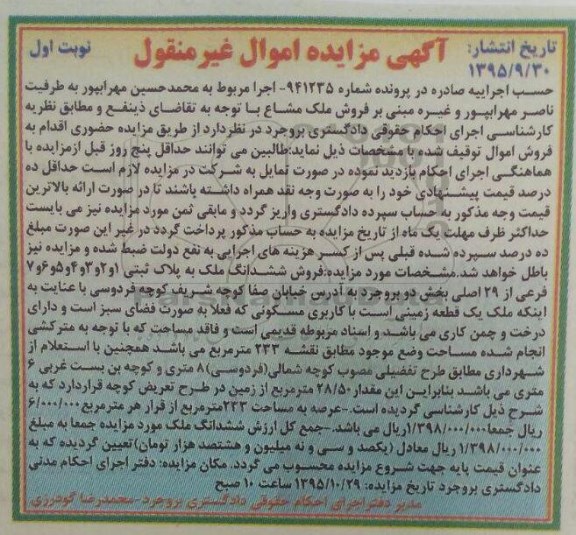 تاریخ انتشار:
۱۳۹۵/۹/۳۰
آگهی مزایده اموال غیرمنقول
نوبت اول
حسب اجراییه صادره در پرونده شماره ۹۴۱۲۳۵- اجرا مربوط به محمدحسین مهرابپور به طرفیت
ناصر مهرابپور و غیره مبنی بر فروش ملک مشاع با توجه به تقاضای ذینفع و مطابق نظریه
کارشناسی اجرای احکام حقوقی دادگستری بروجرد در نظردارد از طریق مزایده حضوری اقدام به
فروش اموال توقیف شده با مشخصات ذیل نماید:طالبین می توانند حداقل پنج روز قبل ازمزایده با
هماهنگی اجرای احکام بازدید نموده در صورت تمایل به شرکت در مزایده لازم است حداقل ده
درصد قیمت پیشنهادی خود را به صورت وجه نقد همراه داشته باشند تا در صورت ارائه بالاترین
قیمت وجه مذکور به حساب سپرده دادگستری واریز گردد و مابقی ثمن مورد مزایده نیز می بایست
حداکثر ظرف مهلت یک ماه از تاریخ مزایده به حساب مذکور پرداخت گردد در غیر این صورت مبلغ
ده درصد سپرده شده قبلی پس از کسر هزینه های اجرایی به نفع دولت ضبط شده و مزایده نیز
باطل خواهد شد.مشخصات مورد مزایده:فروش ششدانگ ملک به پلاک ثبتی ۱و۲و۳و۴و۵و۶و۷
فرعی از ۲۹ اصلی بخش دو بروجرد به آدرس خیابان صفا کوچه شریف کوچه فردوسی با عنایت به
اینکه ملک یک قطعه زمینی است با کاربری مسکونی که فعلا به صورت فضای سبز است و دارای
درخت و چمن کاری می باشد و اسناد مربوطه قدیمی است و فاقد مساحت که با توجه به مترکشی
انجام شده مساحت وضع موجود مطابق نقشه ۲۳۳ مترمربع می باشد همچنین با استعلام از
شهرداری مطابق طرح تفضیلی مصوب کوچه شمالی(فردوسی)۸ متری و کوچه بن بست غربی ۶
متری می باشد بنابراین این مقدار ۲۸/۵۰ مترمربع از زمین در طرح تعریض کوچه قراردارد که به
شرح ذیل کارشناسی گردیده است.-عرصه به مساحت ۲۳۳مترمربع از قرار هر مترمربع ۶/۰۰۰/۰۰۰
ریال جمعا ۱/۳۹۸/۰۰۰/۰۰۰ریال می باشد.-جمع کل ارزش ششدانگ ملک مورد مزایده جمعا به مبلغ
۱/۳۹۸/۰۰۰/۰۰۰ ریال معادل (یکصد و سی و نه میلیون و هشتصد هزار تومان)تعیین گردیده که به
عنوان قیمت پایه جهت شروع مزایده محسوب می گردد. مکان مزایده: دفتر اجرای احکام مدنی
دادگستری بروجرد تاریخ مزایده: ۱۳۹۵/۱۰/۲۹ ساعت ۱۰ صبح
مدیر دفتراجرای احکام حقوقی دادگستری بروجرد -محمدرضا گودرزی